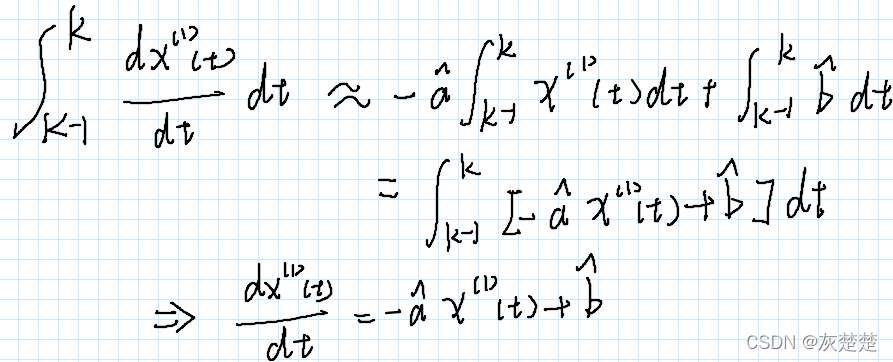 ∫_{k-1}^{k} \frac{dx^{(1)}(t)}{dt} dt ≈ -\hat{a} ∫_{k-1}^{k} x^{(1)}(t) dt + ∫_{k-1}^{k} \hat{b} dt
= ∫_{k-1}^{k} [-\hat{a} x^{(1)}(t) + \hat{b}] dt
⇒ \frac{dx^{(1)}(t)}{dt} = -\hat{a} x^{(1)}(t) + \hat{b}
CSDN @灰楚楚